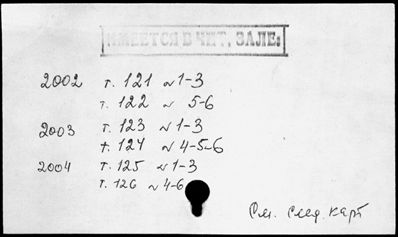 ИМЕЕТСЯ В ЧИТ. ЗАЛЕ:
2002 т. 121 № 1-3
т. 122 № 5-6
2003 т. 123 № 1-3
т. 124 № 4-5-6
2004 т. 125 № 1-3
т. 126 № 4-6
См. след. карт